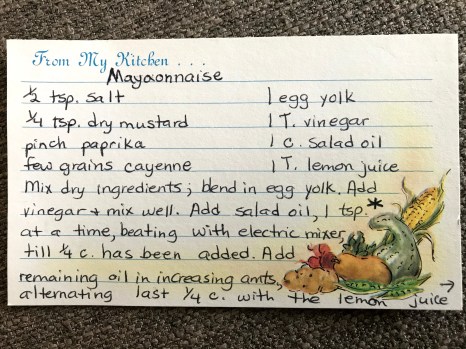 From My Kitchen . . .
Mayaonnaise
½ tsp. salt
1 egg yolk
¼ tsp. dry mustard
1 T. vinegar
pinch paprika
1 c. salad oil
few grains cayenne
1 T. lemon juice
Mix dry ingredients; blend in egg yolk. Add
vinegar + mix well. Add salad oil, 1 tsp.*
at a time, beating with electric mixer
till ¼ c. has been added. Add
remaining oil in increasing amts,
alternating last ¼ c. with the lemon juice →